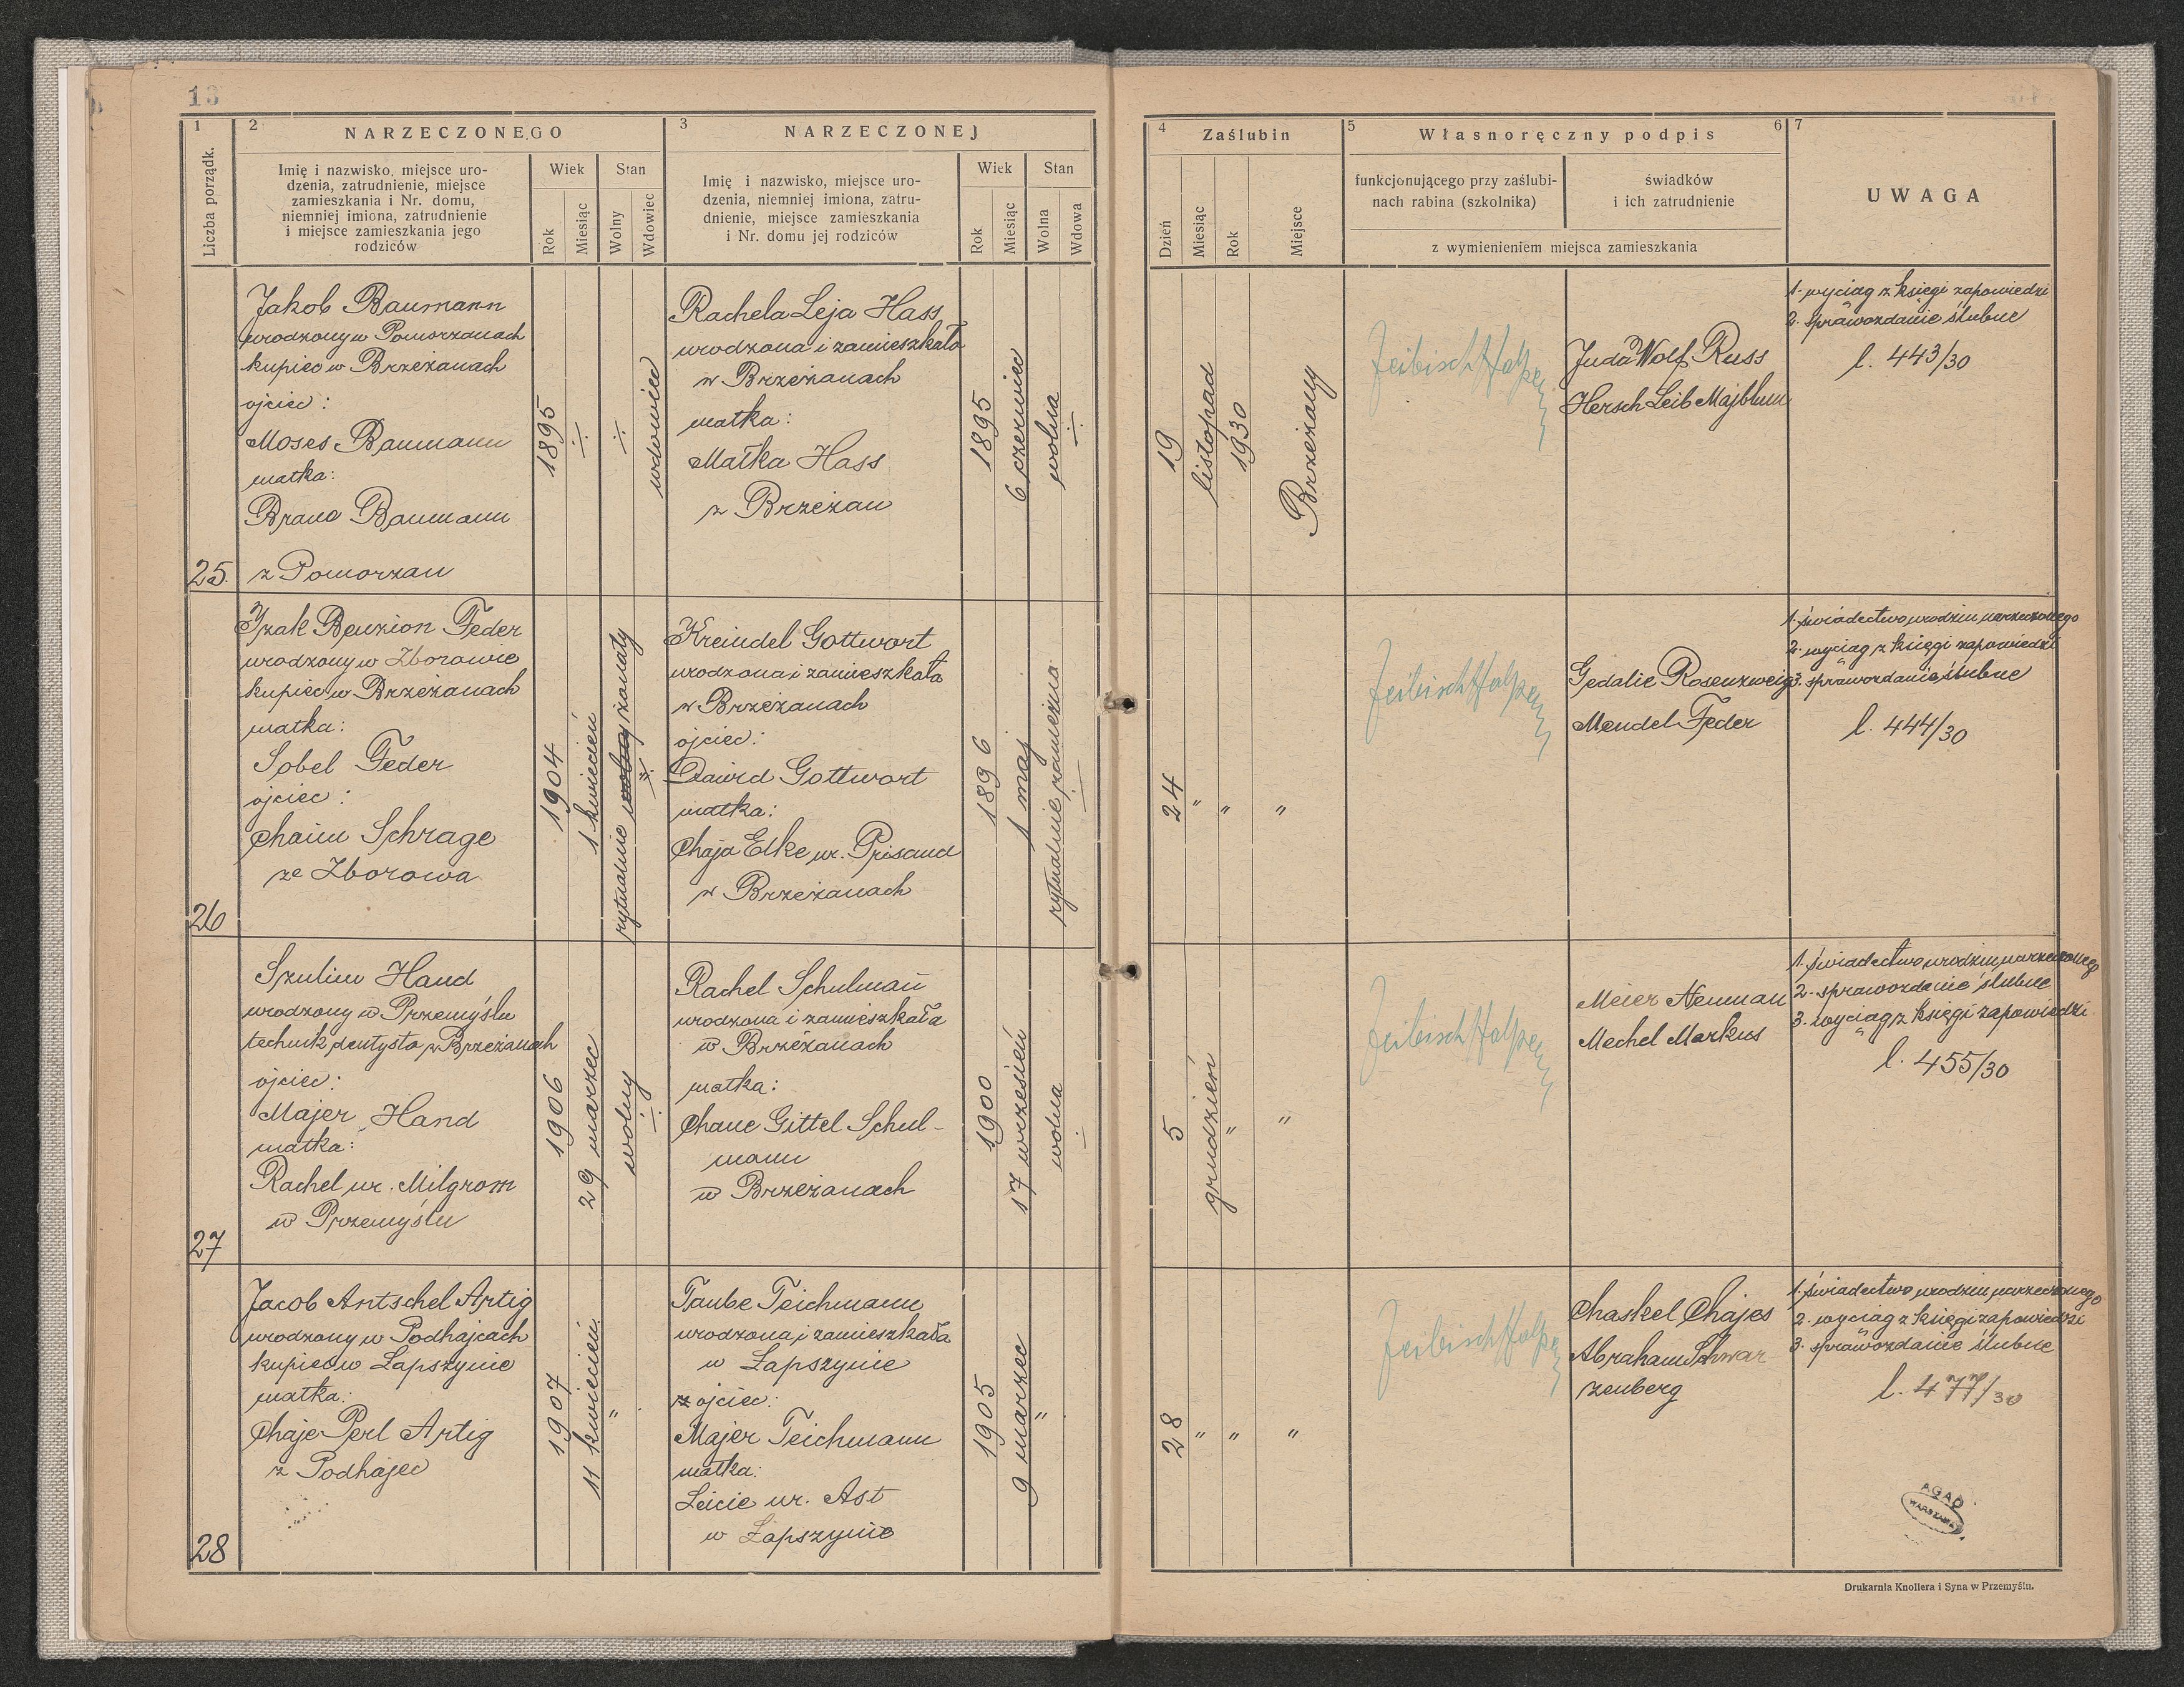 13
1
2
NARZECZONEGO
3
NARZECZONEJ
Liczba porządk.
Imię i nazwisko, miejsce uro-
dzenia, zatrudnienie, miejsce
zamieszkania i Nr. domu,
niemniej imiona, zatrudnienie
i miejsce zamieszkania jego
rodziców
Wiek
Stan
Rok
Miesiąc
Wolny
Wdowiec
Imię i nazwisko, miejsce uro-
dzenia, niemniej imiona, zatru-
dnienie, miejsce zamieszkania
i Nr. domu jej rodziców
Wiek
Stan
Rok
Miesiąc
Wolna
Wdowa
4
Zaślubin
5
Własnoręczny podpis
6
7
Dzień
Miesiąc
Rok
Miejsce
funkcjonującego przy zaślubi-
nach rabina (szkolnika)
świadków
i ich zatrudnienie
z wymienieniem miejsca zamieszkania
UWAGA
25.
Jakob Baumann
urodzony w Pomorzanach
kupiec w Brzeżanach
ojciec:
Moses Baumann
matka:
Baumann
z Pomorzan
1895
wdowiec
Rachela Leja Hass
urodzona i zamieszkała
w Brzeżanach
matka:
Małka Hass
z Brzeżan
1895
6 czerwiec
wolna
19
listopad
1930
Brzeżany
Feibisch Halpern
Juda Wolf Russ
Hersch Leib Majblum
1. wyciąg z księgi zapowiedzi
2. sprawozdanie ślubne
l. 443/30
26
Izak Benzion Feder
urodzony w Zborowie
kupiec w Brzeżanach
matka:
Sobel Feder
ojciec:
Chaim Schrage
ze Zborowa
1904
1 kwiecień
rytualnie wolny żonaty
"
Kreindel Gottwort
urodzona i zamieszkała
w Brzeżanach
ojciec:
Dawid Gottwort
matka:
Chaja Elke ur. Prisand
w Brzeżanach
1896
1 maj
rytualnie zamężna
24
"
"
"
Feibisch Halpern
Gedalie Rosenzweig
Mendel Feder
1. świadectwo urodzin narzeczonego
2. wyciąg z księgi zapowiedzi
3. sprawozdanie ślubne
l. 444/30
27
Szulim Hand
urodzony w Przemyślu
technik dentysta w Brzeżanach
ojciec:
Majer Hand
matka:
Rachel ur. Milgrom
w Przemyślu
1906
29 marzec
wolny
Rachel Schulman
urodzona i zamieszkała
w Brzeżanach
matka:
Chane Gittel Schul-
mann
w Brzeżanach
1900
17 wrzesień
wolna
5
grudzień
"
"
Feibisch Halpern
Meier Neuman
Mechel Markus
1. świadectwo urodzin narzeczonego
2. sprawozdanie ślubne
3. wyciąg z księgi zapowiedzi
l. 455/30
28
Jacob Antschel Artig
urodzony w Podhajcach
kupiec w Łapszynie
matka:
Chaje Perl Artig
z Podhajec
1907
11 kwiecień
"
Taube Teichmann
urodzona i zamieszkała
w Łapszynie
z ojciec:
Majer Teichmann
matka:
Leicie ur. Ast
w Łapszynie
1905
9 marzec
"
28
"
"
"
Feibisch Halpern
Chaskel Chajes
Abraham Schwar
zenberg
1. świadectwo urodzin narzeczonego
2. wyciąg z księgi zapowiedzi
3. sprawozdanie ślubne
l. 477/30
AGAD
WARSZAWA
Drukarnia Knollera i Syna w Przemyślu.